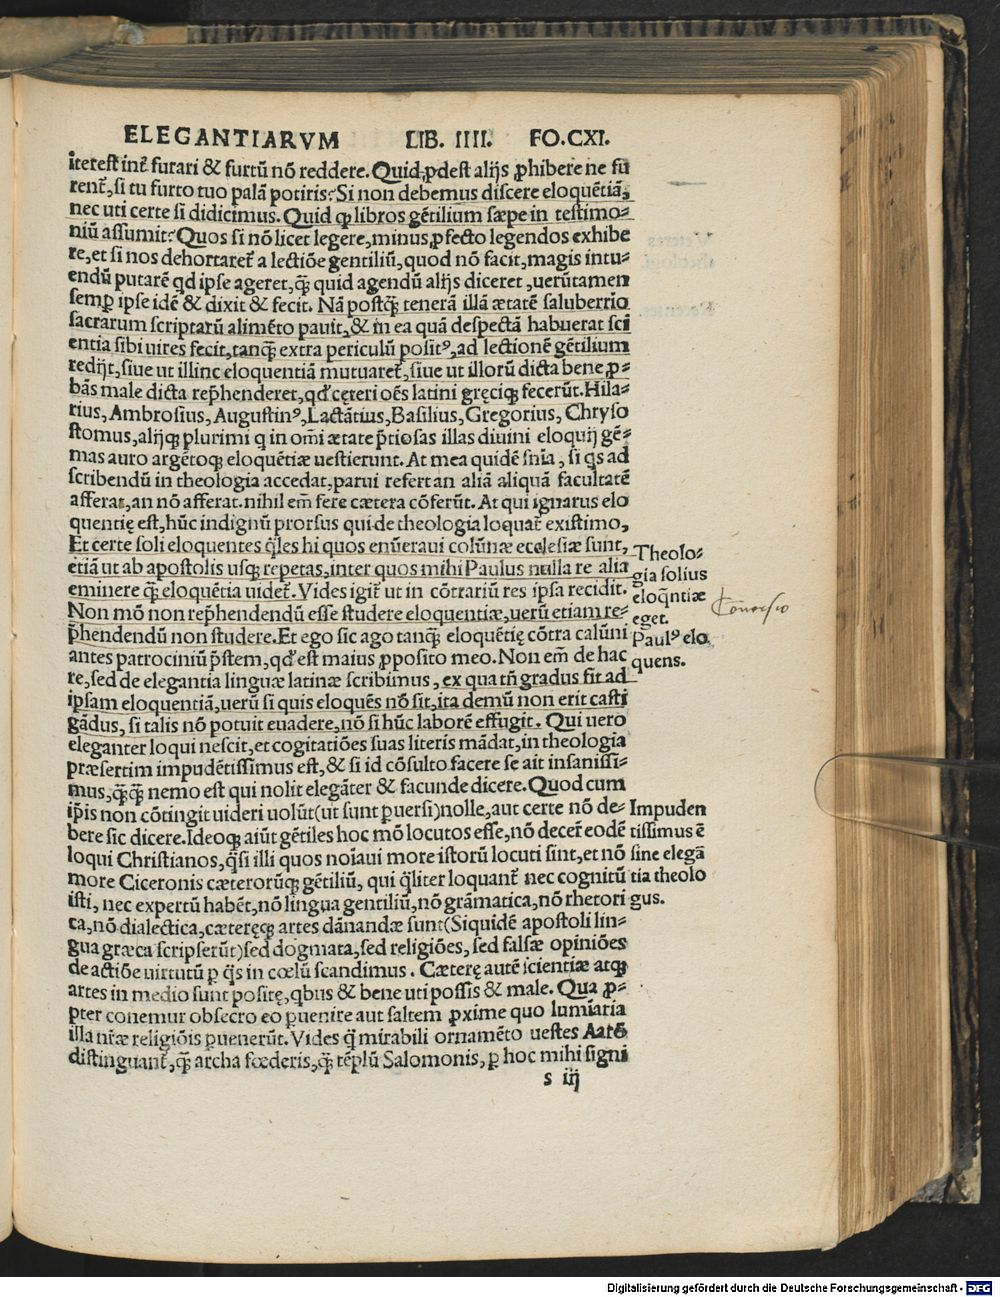 ELEGANTIARVM LIB. IIII. FO.CXI.
īterest int̄ furari & furtū nō reddere. Quid ꝓdest alijs ꝓhibere ne fu
rent̄, si tu furto tuo palā potiris? Si non debemus discere eloquētiā,
nec uti certe si didicimus. Quid ꝙ libros gētilium sæpe in testimo-
niū assumit? Quos si nō licet legere, minus ꝓfecto legendos exhibe
re, et si nos dehortaret̄ a lectiōe gentiliū, quod nō facit, magis intu-
endū putarē qd ipse ageret, q̄ꝫ quid agendū alijs diceret, uerūtamen
semꝑ ipse idē & dixit & fecit. Nā postq̄ꝫ tenerā illā ætatē saluberrīo
sacrarum scripturū alimēto pauit, & in ea quā despectā habuerat sci
entia sibi uires fecit, tanq̄ꝫ extra periculū positꝰ, ad lectionē gētilium
redijt, siue ut illinc eloquentiā mutuaret̄, siue ut illorū dicta bene ꝓ-
bās male dicta rep̄henderet, qd̓ cęteri oēs latini gręciqꝫ fecerūt. Hila-
rius, Ambrosius, Augustinꝰ, Lactātius, Basilius, Gregorius, Chryso
stomus, alijqꝫ plurimi q in om̄i ætate p̄tiosas illas diuini eloquij gē-
mas auro argētoqꝫ eloquētiæ uestierunt. At mea quidē sn̄ia, si qs ad
scribendū in theologia accedat, parui refert an aliā aliquā facultatē
afferat, an nō afferat. nihil em̄ fere cætera cōferūt. At qui ignarus elo
quentię est, hūc indignū prorsus qui de theologia loquat̄ existimo,
Et certe soli eloquentes q̄les hi quos enūeraui colūnæ ecclesiæ sunt,
etiā ut ab apostolis usqꝫ repetas, inter quos mihi Paulus nulla re alia
eminere q̄ꝫ eloquētia uidet̄. Vides igit̄ ut in cōtrariū res ipsa recidit.
Non mō non rep̄hendendū esse studere eloquentiæ, uerū etiam re-
p̄hendendū non studere. Et ego sic ago tanq̄ꝫ eloquētię cōtra calūni
antes patrociniū p̄stem, qd̓ est maius ꝓposito meo. Non em̄ de hac
re, sed de elegantia linguæ latinæ scribimus, ex qua tn̄ gradus fit ad
ipsam eloquentiā, uerū si quis eloquēs nō sit, ita demū non erit casti
gādus, si talis nō potuit euadere, nō si hūc laborē effugit. Qui uero
eleganter loqui nescit, et cogitatiōes suas literis mādat, in theologia
præsertim impudētissimus est, & si id cōsulto facere se ait insanissi-
mus, q̄ꝫq̄ꝫ nemo est qui nolit elegāter & facunde dicere. Quod cum
ip̄is non cōtingit uideri uolūt (ut sunt ꝑuersi) nolle, aut certe nō de-
bere sic dicere. Ideoqꝫ aiūt gētiles hoc mō locutos esse, nō decet̄ eodē
loqui Christianos, q̄si illi quos noīaui more istorū locuti sint, et nō
more Ciceronis cæterorūqꝫ gētiliū, qui q̄liter loquant̄ nec cognitū
isti, nec expertū habēt, nō lingua gentiliū, nō grāmatica, nō rhetori
ca, nō dialectica, cæteręqꝫ artes dānandæ sunt (Siquidē apostoli lin-
gua græca scripserūt) sed dogmata, sed religiōes, sed falsæ opiniōes
de actiōe uirtutū ꝑ q̄s in cœlū scandimus. Cæterę autē scientiæ atqꝫ
artes in medio sunt positę, qbus & bene uti possis & male. Qua ꝓ-
pter conemur obsecro eo ꝑuenire aut saltem ꝓxime quo lumīaria
illa nr̄æ religiōis ꝑuenerūt. Vides q̄ mirabili ornamēto uestes Aarō
distinguant̄, q̄ꝫ archa fœderis, q̄ꝫ tēplū Salomonis, ꝑ hoc mihi signi
s iij
Theolo-
gia solius
eloq̄ntiæ
eget.
Paulꝰ elo
quens.
Impuden
tissimus ē
sine elegā
tia theolo
gus.